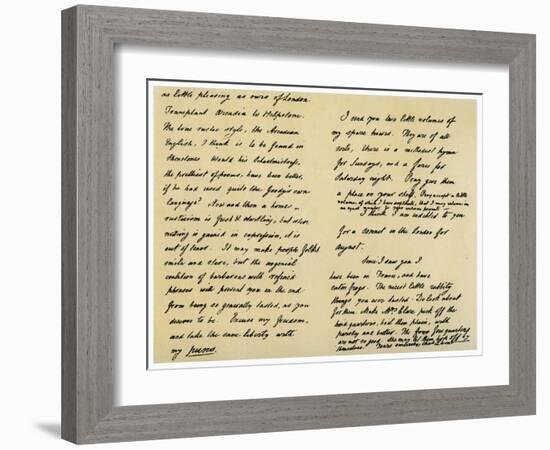 as little pleasing as ours of London.
Transplant Arcadia to Helpstone.
The true rustic style, the Arcadian
English, I think is to be found in
Shenstones. Would his Schoolmistress,
the prettiest of poems, have been better,
if he had used quite the Goody's own
language? Now and then a home
rusticism is fresh & startling, but where
nothing is gained in expression, it is
out of tenor. It may make people folks
smile and stare, but the ungenial
coalition of barbarous with refined
phrases will prevent you in the end
from being so generally tasted, as you
deserve to be. Excuse my freedom,
and take the same liberty with
my puns.
I send you two little volumes of
my spare hours. They are of all
sorts, there is a methodist hymn
for Sundays, and a farce for
Saturday night. Pray give them
a place on your shelf. Pray accept a little
volume, of which I have duplicate, that I may return in
equal number to your welcome presents.
I think I am indebted to you
for a sonnet in the London for
August.
Since I saw you I
have been in France, and have
eaten frogs. The nicest little rabbity
things you ever tasted. Do look about
for them. Make Mrs. Clare pick off the
hind quarters, boil them plain, with
parsley and butter. The fore quarters
are not so good. She may let them hop off by
themselves. Yours sincerely, Chas Lamb